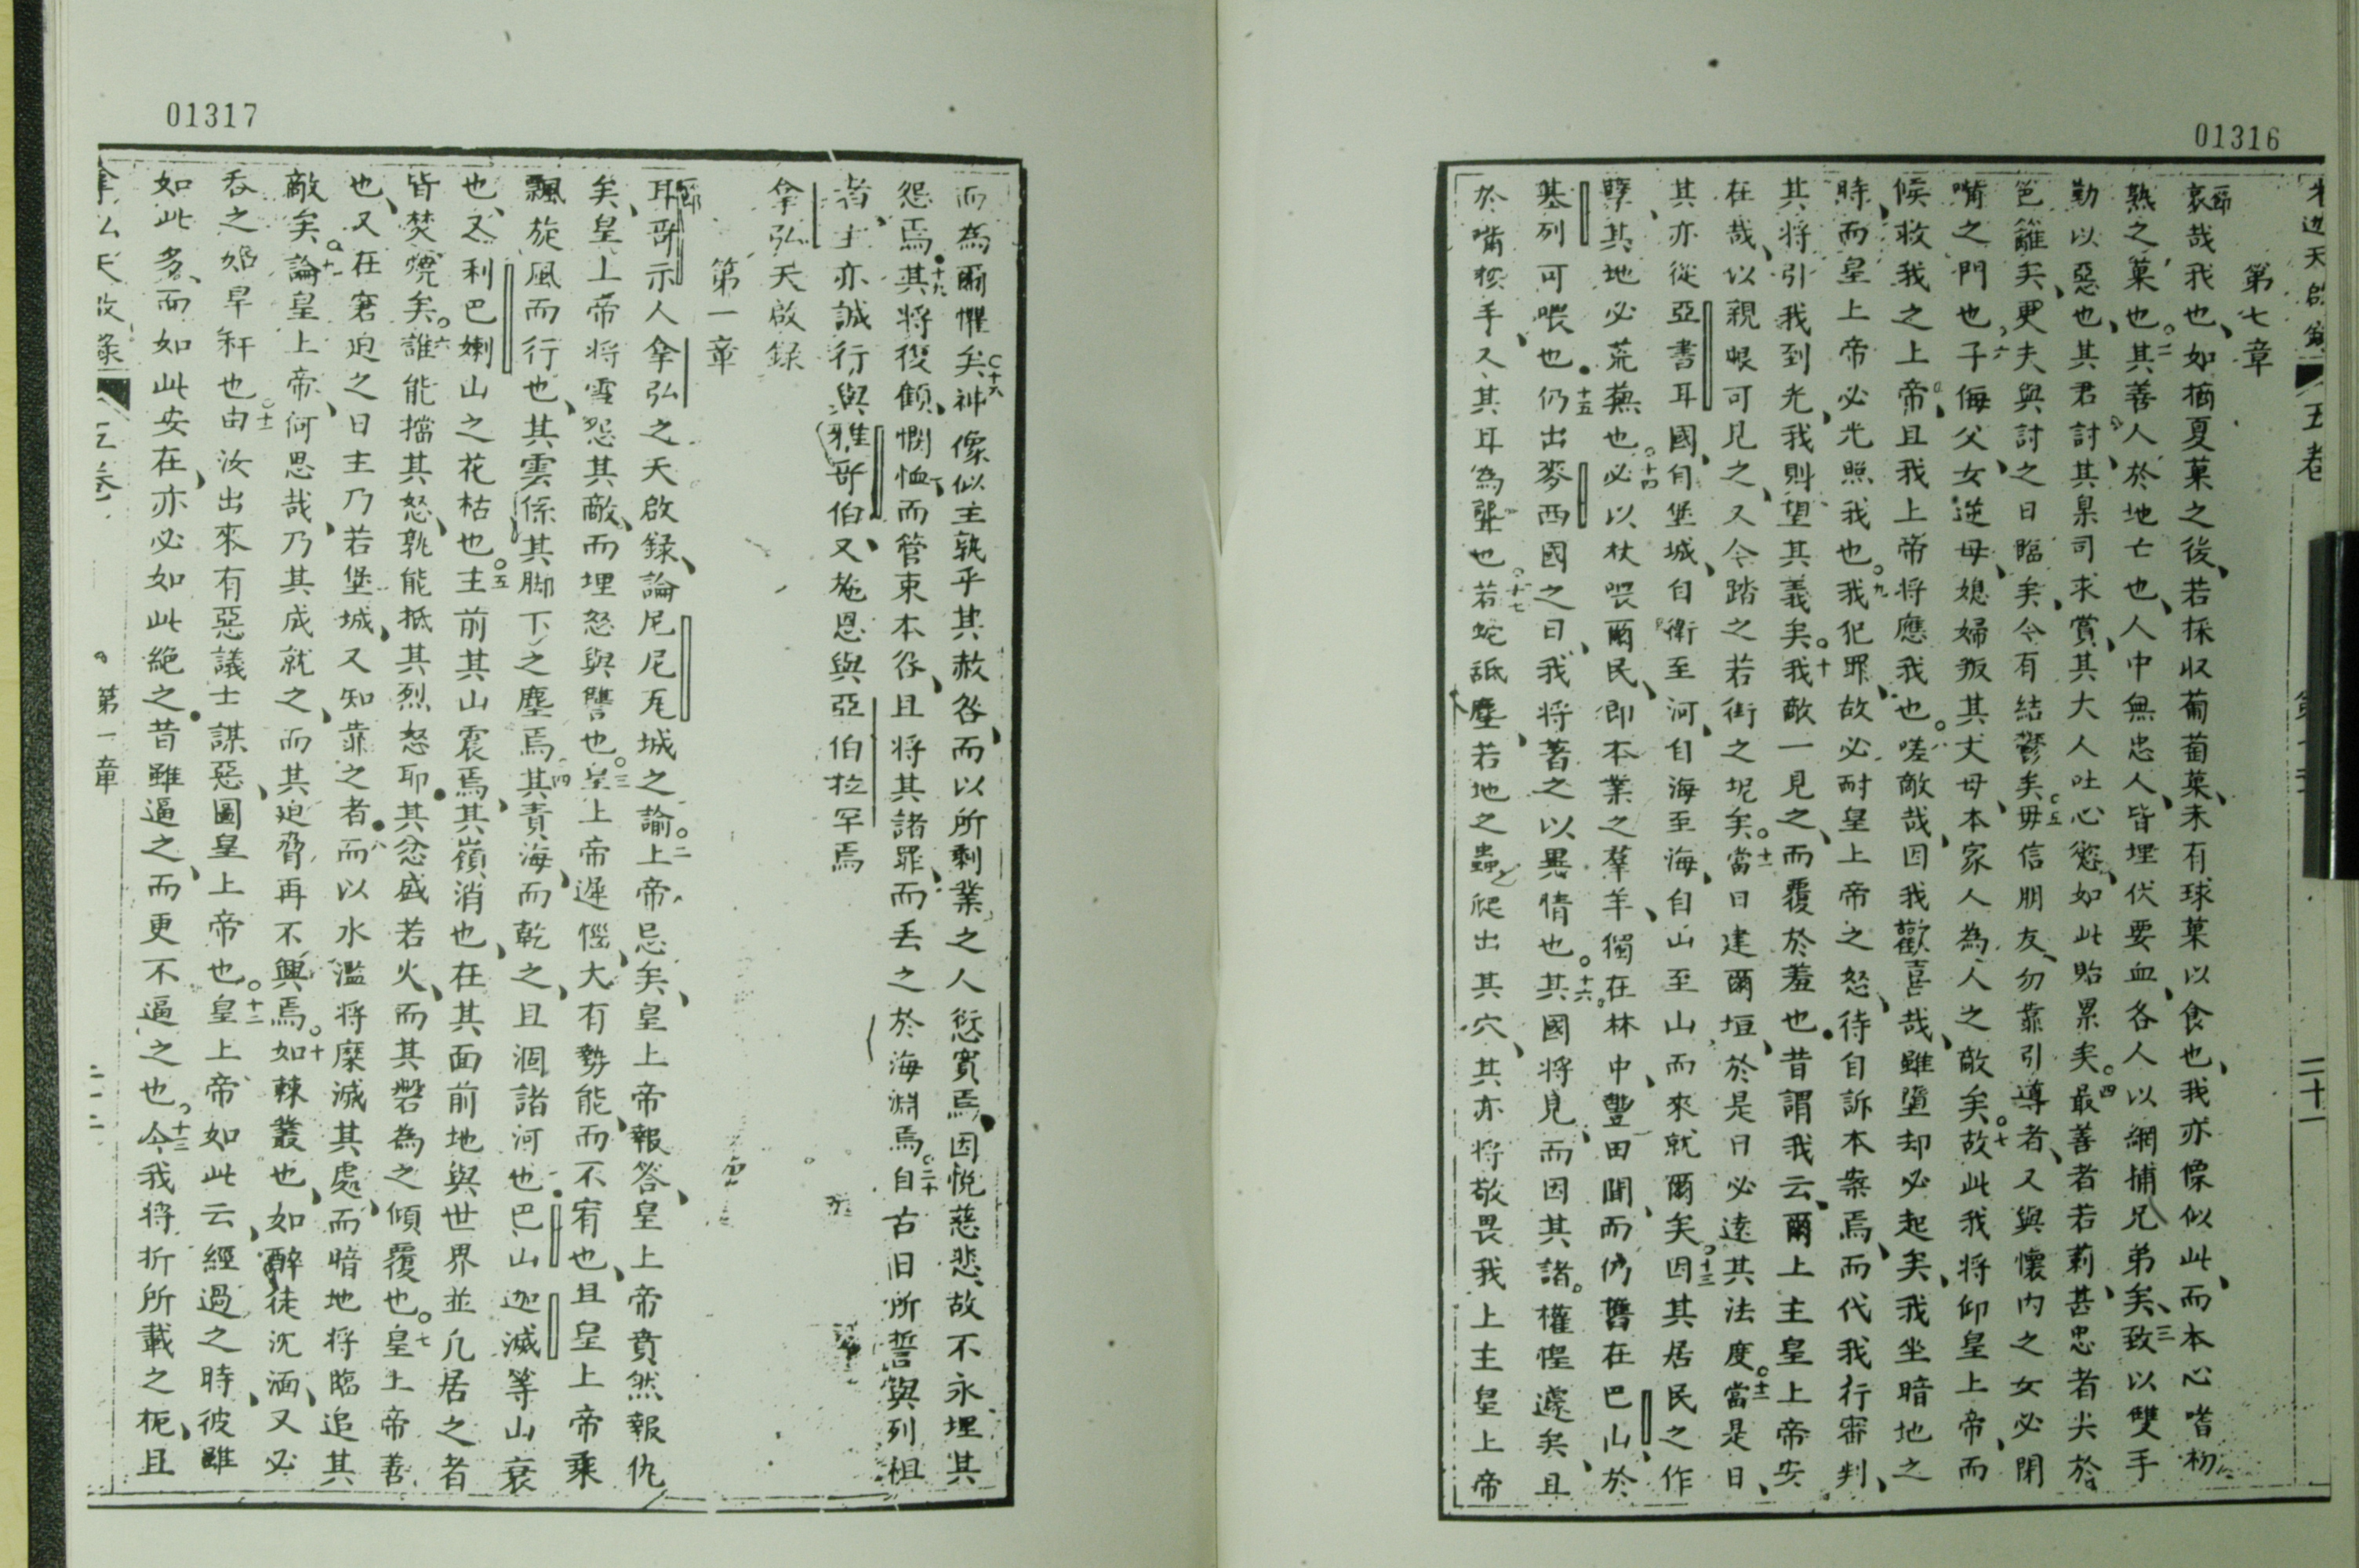 01316
第七章
一節哀哉我也、如摘夏菓之後、若採収葡萄菓、未有球菓以食也、我亦像似此、而本心嗜初
熟之菓也。二其善人於地亡也、人中無忠人、皆埋伏要血、各人以網捕兄弟矣、三致以雙手
勤以惡也、其君討、其臬司求賞、其大人吐心慾、如此貽累矣。四最善者若莿、甚忠者尖於
笆籬矣、更夫與討之日臨矣、今有結鬱矣。五毋信朋友、勿靠引導者、又與懷内之女必閉
嘴之門也、六子侮父、女逆母、媳婦叛其丈母、本家人為人之敵矣。七故此我將仰皇上帝、而
候救我之上帝、且我上帝將應我也。八嗟敵哉、因我歡喜哉、雖墮却必起矣、我坐暗地之
時、而皇上帝必光照我也。九我犯罪故、必耐皇上帝之怒、待自訴本案焉、而代我行審判、
其將引我到光、我則望其義矣。十我敵一見之、而覆於羞也。昔謂我云、爾上主皇上帝安
在哉、以親眼可見之、又今踏之若街之坭矣。十一當日建爾垣、於是日必遠其法度。十二當是日、
其亦從亞書耳國、自堡城、自衛至河、自海至海、自山至山、而來就爾矣。十三因其居民之作
孽、其地必荒蕪也。十四必以杖喂爾民、即本業之羣羊、獨在林中、豐田間而仍舊在巴山、於
基列可喂也。十五仍出麥西國之日、我將著之以異情也。十六其國將見、而因其諸權惶遽矣、且
於嘴捼手、又其耳為聾也。十七若蛇舐塵、若地之蟲爬出其穴、其亦將敬畏我上主皇上帝
01317
而為爾懼矣。十八神像似主孰乎、其赦咎、而以所剩業之人愆寬焉、因悅慈悲、故不永埋其
怨焉。十九其將復顧、憫恤、而管束本咎、且將其諸罪、而丢之於海淵焉。二十自古旧所誓與列祖
者、主亦誠行、與雅哥伯、又施恩與亞伯拉罕焉
拿弘天啟録
第一章
一節耳哥示人拿弘之天啟録、論尼尼瓦城之諭。二上帝忌矣、皇上帝報答、皇上帝賁然報仇
矣、皇上帝將雪怨其敵、而埋怒與讐也。三皇上帝遲惱、大有勢能、而不宥也、且皇上帝乘
飄旋風而行也、其雲係其脚下之塵焉。四其責海、而乾之、且涸諸河也。巴山迦滅等山衰
也、又利巴喇山之花枯也。五主前其山震焉、其嶺消也、在其面前地與世界並凢居之者
皆焚燒矣。六誰能擋其怒、孰能抵其烈怒耶。其忿盛若火、而其磐為之傾覆也。七皇上帝善
也、又在窘迫之日主乃若堡城、又知靠之者。八而以水濫將糜滅其處、而暗地將臨追其
敵矣。九論皇上帝、何思哉、乃其成就之、而其迫脅再不興焉。十如棘叢也、如醉徒沈湎、又必
吞之如旱秆也。十一由汝出來有惡議士謀惡、圖皇上帝也。十二皇上帝如此云、經過之時、彼雖
如此多、而如此安在、亦必如此絶之。昔雖逼之、而更不逼之也。十三今我將折所載之枙、且
第一章